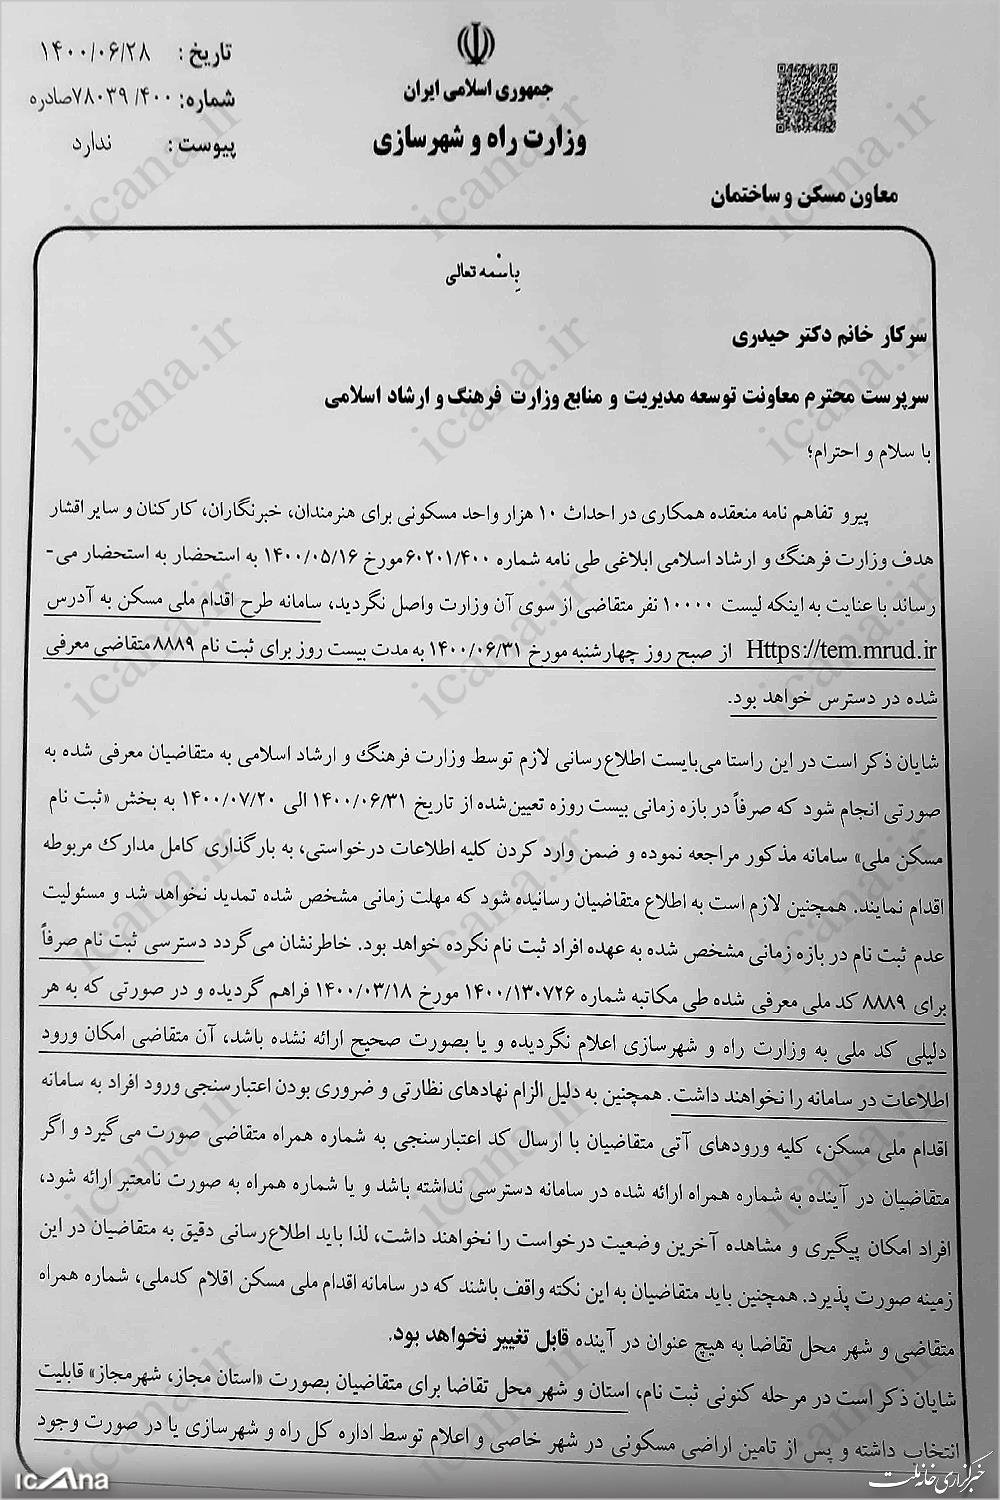 تاریخ : ۱۴۰۰/۰۶/۲۸
شماره: ۷۸۰۳۹/۴۰۰صادره
پیوست : ندارد
جمهوری اسلامی ایران
وزارت راه و شهرسازی
معاون مسکن و ساختمان
باسمه تعالی
سرکار خانم دکتر حیدری
سرپرست محترم معاونت توسعه مدیریت و منابع وزارت فرهنگ و ارشاد اسلامی
با سلام و احترام؛
پیرو تفاهم نامه منعقده همکاری در احداث ۱۰ هزار واحد مسکونی برای هنرمندان، خبرنگاران، کارکنان و سایر اقشار
هدف وزارت فرهنگ و ارشاد اسلامی ابلاغی طی نامه شماره ۶۰۲۰۱/۴۰۰مورخ ۱۴۰۰/۰۵/۱۶ به استحضار به استحضار می-
رساند با عنایت به اینکه لیست ۱۰۰۰۰ نفر متقاضی از سوی آن وزارت واصل نگردید، سامانه طرح اقدام ملی مسکن به آدرس
Https://tem.mrud.ir از صبح روز چهارشنبه مورخ ۱۴۰۰/۰۶/۳۱ به مدت بیست روز برای ثبت نام ۸۸۸۹ متقاضی معرفی
شده در دسترس خواهد بود.
شایان ذکر است در این راستا می‌بایست اطلاع‌رسانی لازم توسط وزارت فرهنگ و ارشاد اسلامی به متقاضیان معرفی شده به
صورتی انجام شود که صرفاً در بازه زمانی بیست روزه تعیین‌شده از تاریخ ۱۴۰۰/۰۶/۳۱ الی ۱۴۰۰/۰۷/۲۰ به بخش «ثبت نام
مسکن ملی» سامانه مذکور مراجعه نموده و ضمن وارد کردن کلیه اطلاعات درخواستی، به بارگذاری کامل مدارک مربوطه
اقدام نمایند. همچنین لازم است به اطلاع متقاضیان رسانیده شود که مهلت زمانی مشخص شده تمدید نخواهد شد و مسئولیت
عدم ثبت نام در بازه زمانی مشخص شده به عهده افراد ثبت نام نکرده خواهد بود. خاطرنشان می‌گردد دسترسی ثبت نام صرفاً
برای ۸۸۸۹ کد ملی معرفی شده طی مکاتبه شماره ۱۴۰۰/۱۳۰۷۲۶ مورخ ۱۴۰۰/۰۳/۱۸ فراهم گردیده و در صورتی که به هر
دلیلی کد ملی به وزارت راه و شهرسازی اعلام نگردیده و یا بصورت صحیح ارائه نشده باشد، آن متقاضی امکان ورود
اطلاعات در سامانه را نخواهند داشت. همچنین به دلیل الزام نهادهای نظارتی و ضروری بودن اعتبارسنجی ورود افراد به سامانه
اقدام ملی مسکن، کلیه ورودهای آتی متقاضیان با ارسال کد اعتبارسنجی به شماره همراه متقاضی صورت می‌گیرد و اگر
متقاضیان در آینده به شماره همراه ارائه شده در سامانه دسترسی نداشته باشد و یا شماره همراه به صورت نامعتبر ارائه شود،
افراد امکان پیگیری و مشاهده آخرین وضعیت درخواست را نخواهند داشت، لذا باید اطلاع‌رسانی دقیق به متقاضیان در این
زمینه صورت پذیرد. همچنین باید متقاضیان به این نکته واقف باشند که در سامانه اقدام ملی مسکن اقلام کدملی، شماره همراه
متقاضی و شهر محل تقاضا به هیچ عنوان در آینده قابل تغییر نخواهد بود.
شایان ذکر است در مرحله کنونی ثبت نام، استان و شهر محل تقاضا برای متقاضیان بصورت «استان مجاز، شهرمجاز» قابلیت
انتخاب داشته و پس از تامین اراضی مسکونی در شهر خاصی و اعلام توسط اداره کل راه و شهرسازی یا در صورت وجود
icana.ir
icana
خبرگزاری خانه ملت